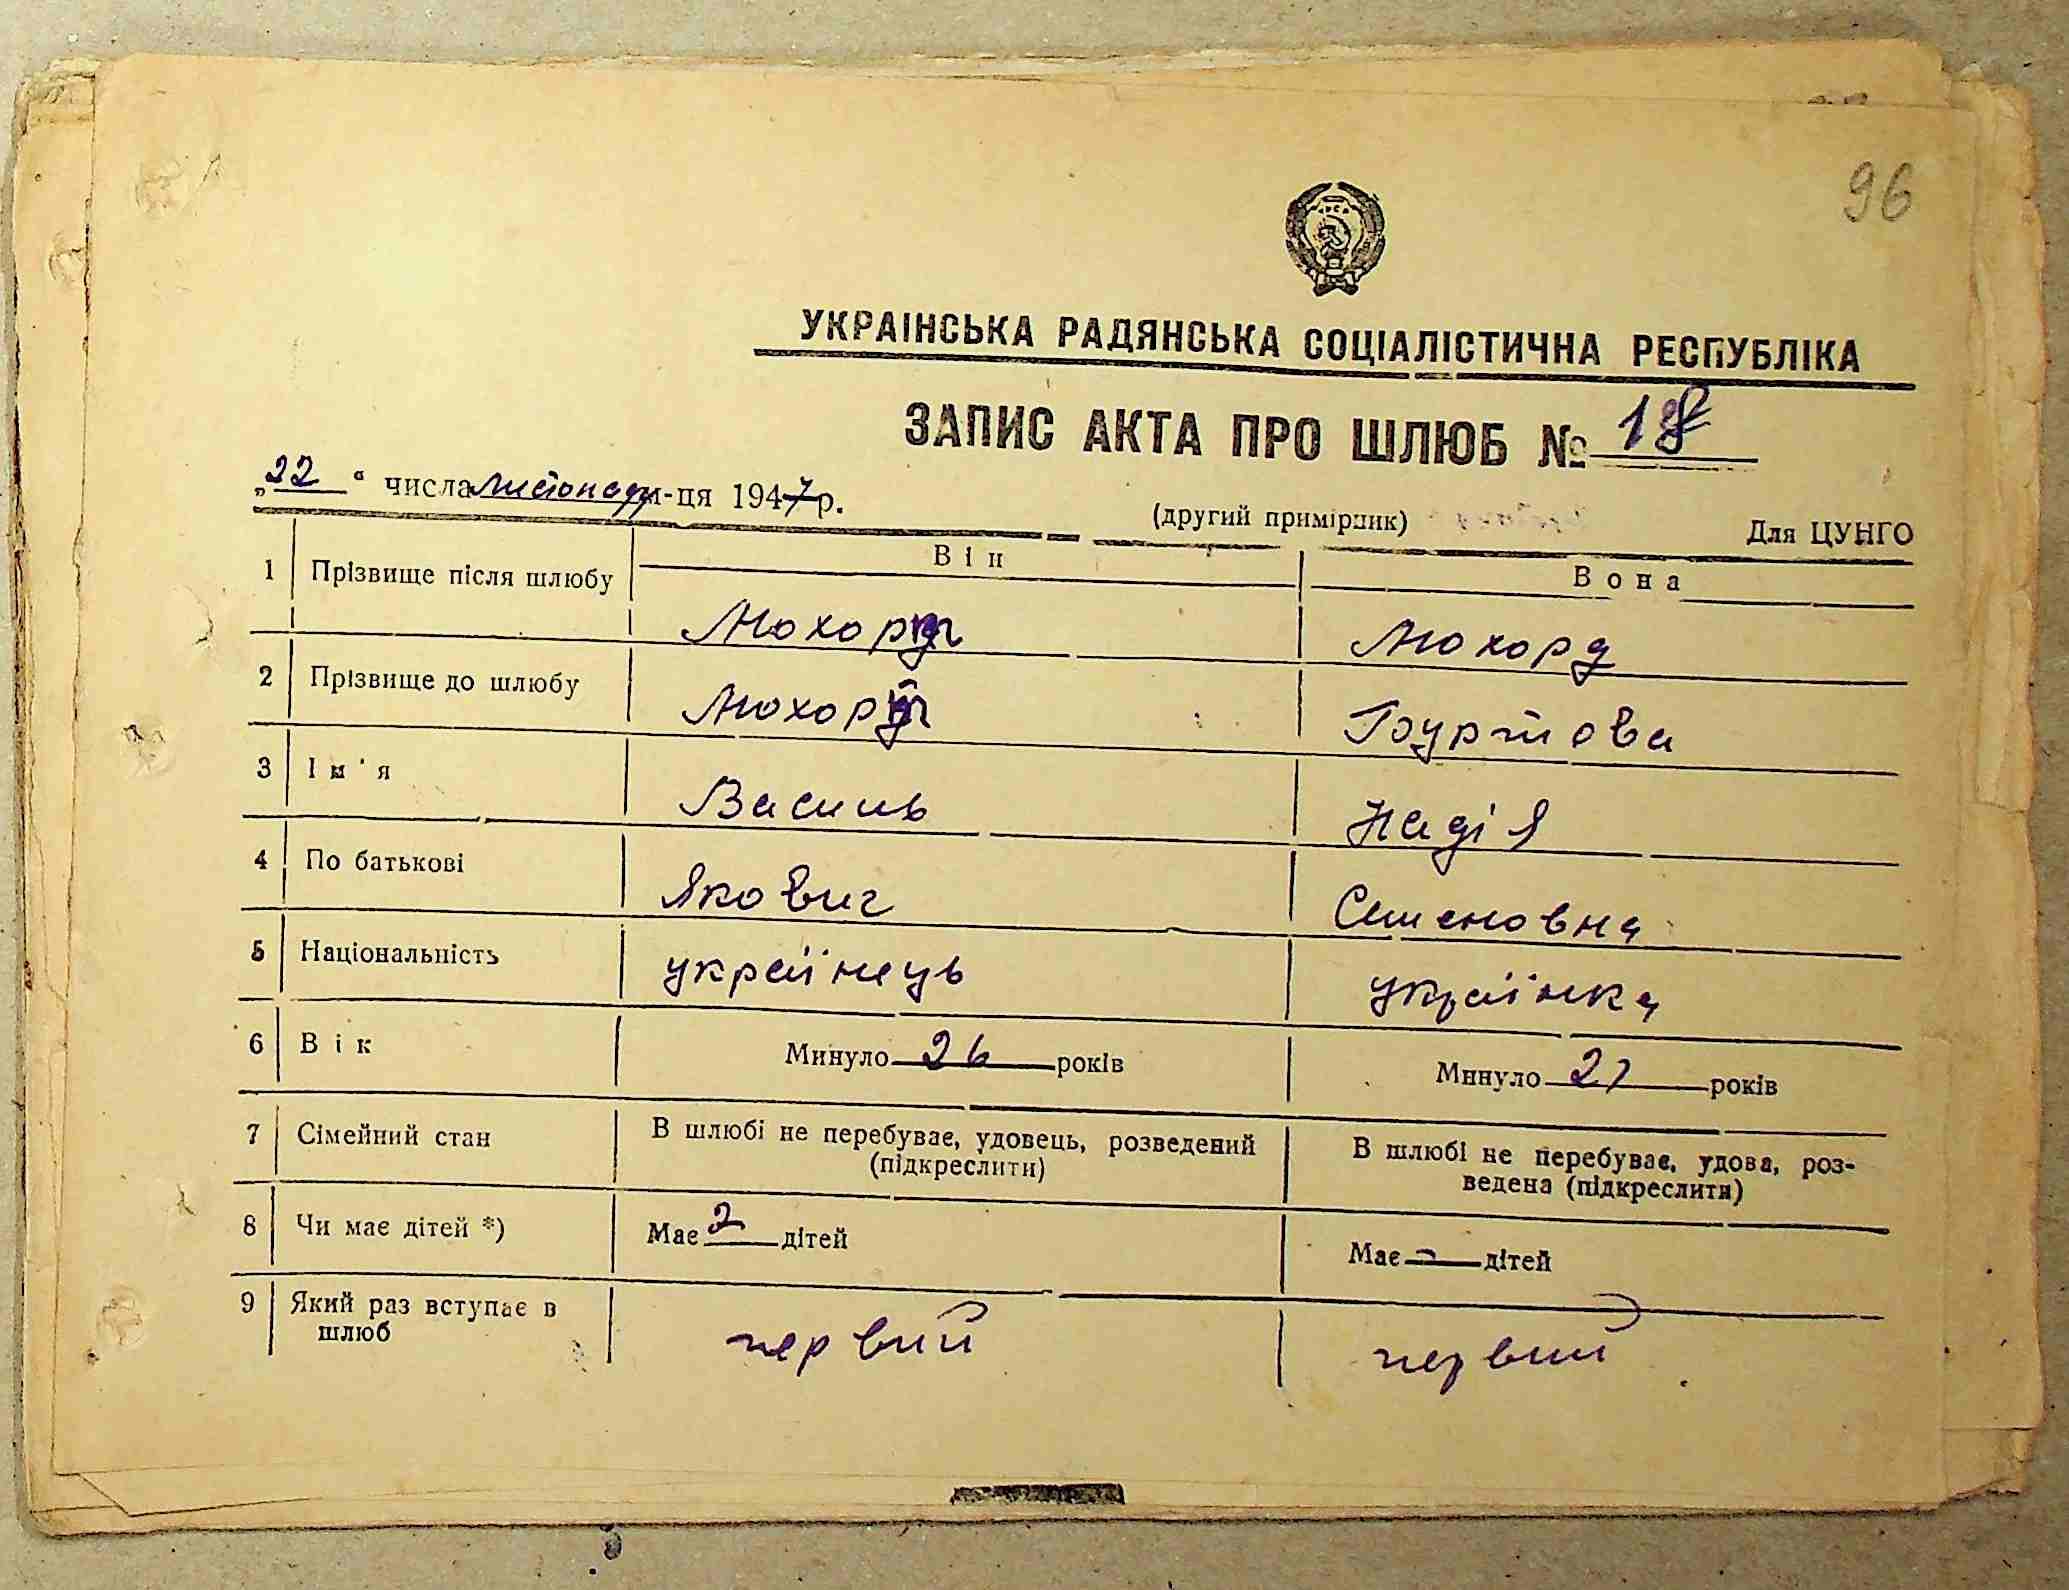 96
УКРАЇНСЬКА РАДЯНСЬКА СОЦІАЛІСТИЧНА РЕСПУБЛІКА
ЗАПИС АКТА ПРО ШЛЮБ № 18
„22“ числа листопада м-ця 1947 р.
(другий примірник) Для ЦУНГО
Він Вона
1 Прізвище після шлюбу Мохорт Мохорд
2 Прізвище до шлюбу Мохорт Гуртова
3 Ім'я Василь Надія
4 По батькові Якович Семеновна
5 Національність українець українка
6 Вік Минуло 26 років Минуло 27 років
7 Сімейний стан В шлюбі не перебуває, удовець, розведений (підкреслити) В шлюбі не перебуває, удова, роз-
ведена (підкреслити)
8 Чи має дітей *) Має 2 дітей Має дітей
9 Який раз вступає в шлюб первий первий